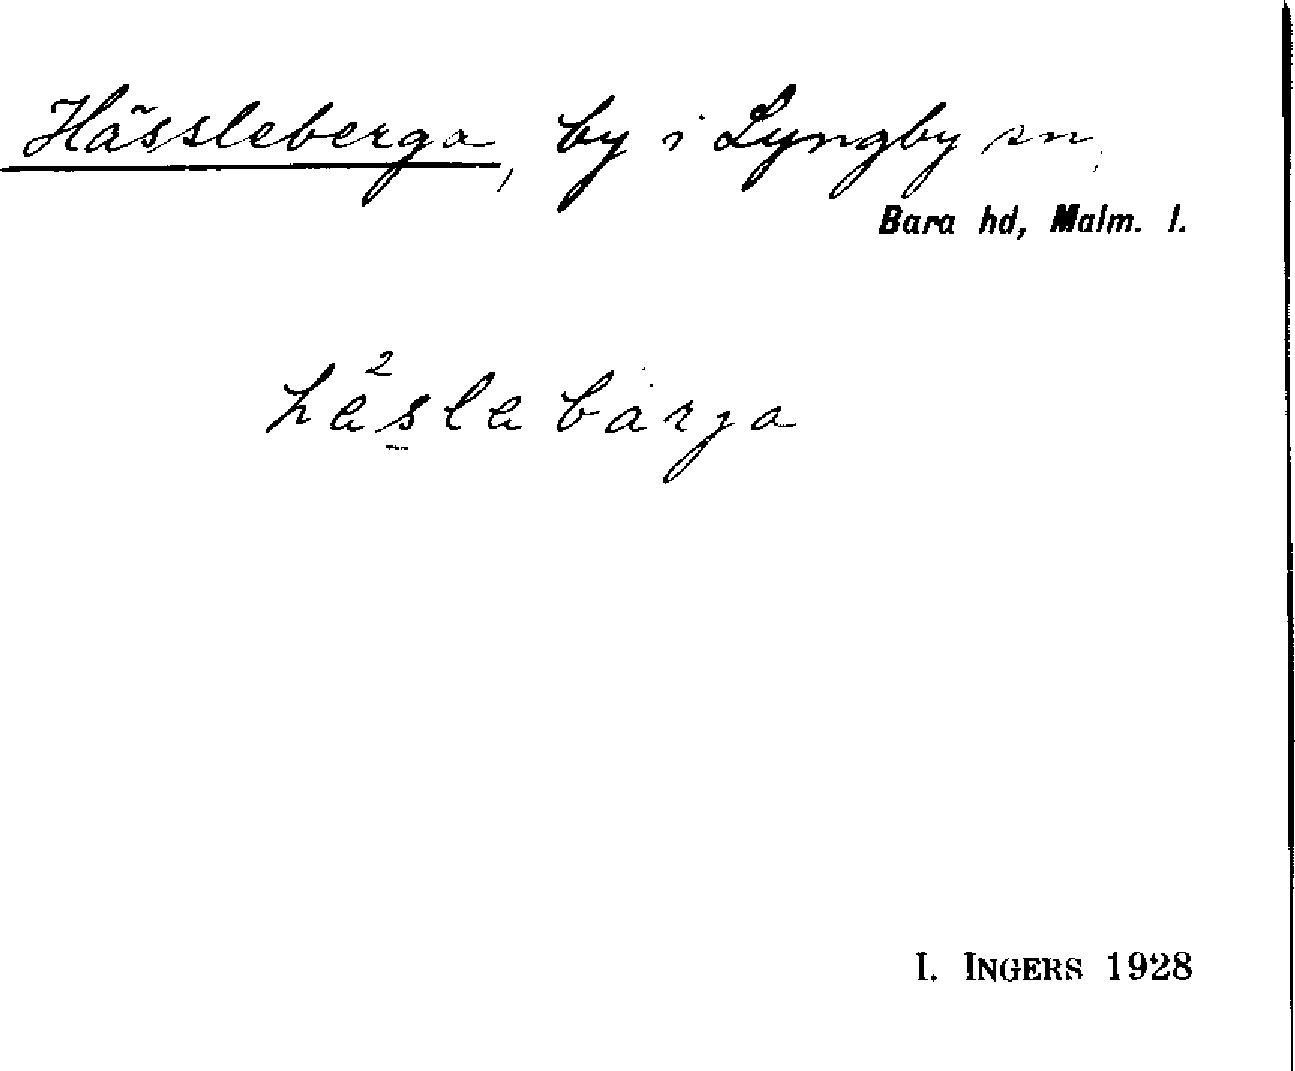 Hässleberga, by i Lyngby sn,
Bara hd, Malm. l.
hä²slabärja
I. INGERS 1928